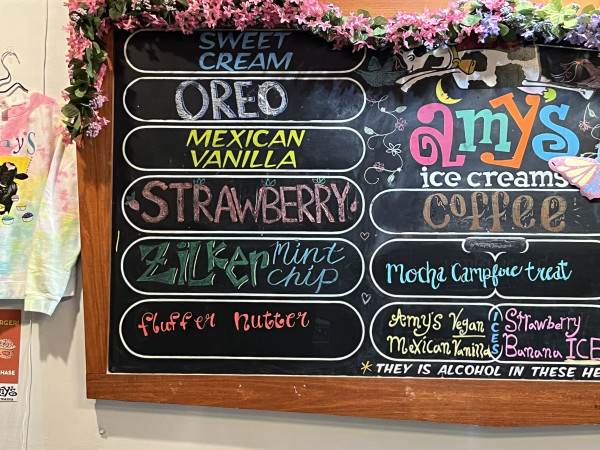 SWEET
CREAM
OREO
MEXICAN
VANILLA
STRAWBERRY
Zilker Mint
chip
fluffer nutter
amy's
ice creams
coffee
Mocha Campfire treat
Amy's Vegan
Mexican Vanilla
ICES
Strawberry
Banana ICE
* THEY IS ALCOHOL IN THESE HE